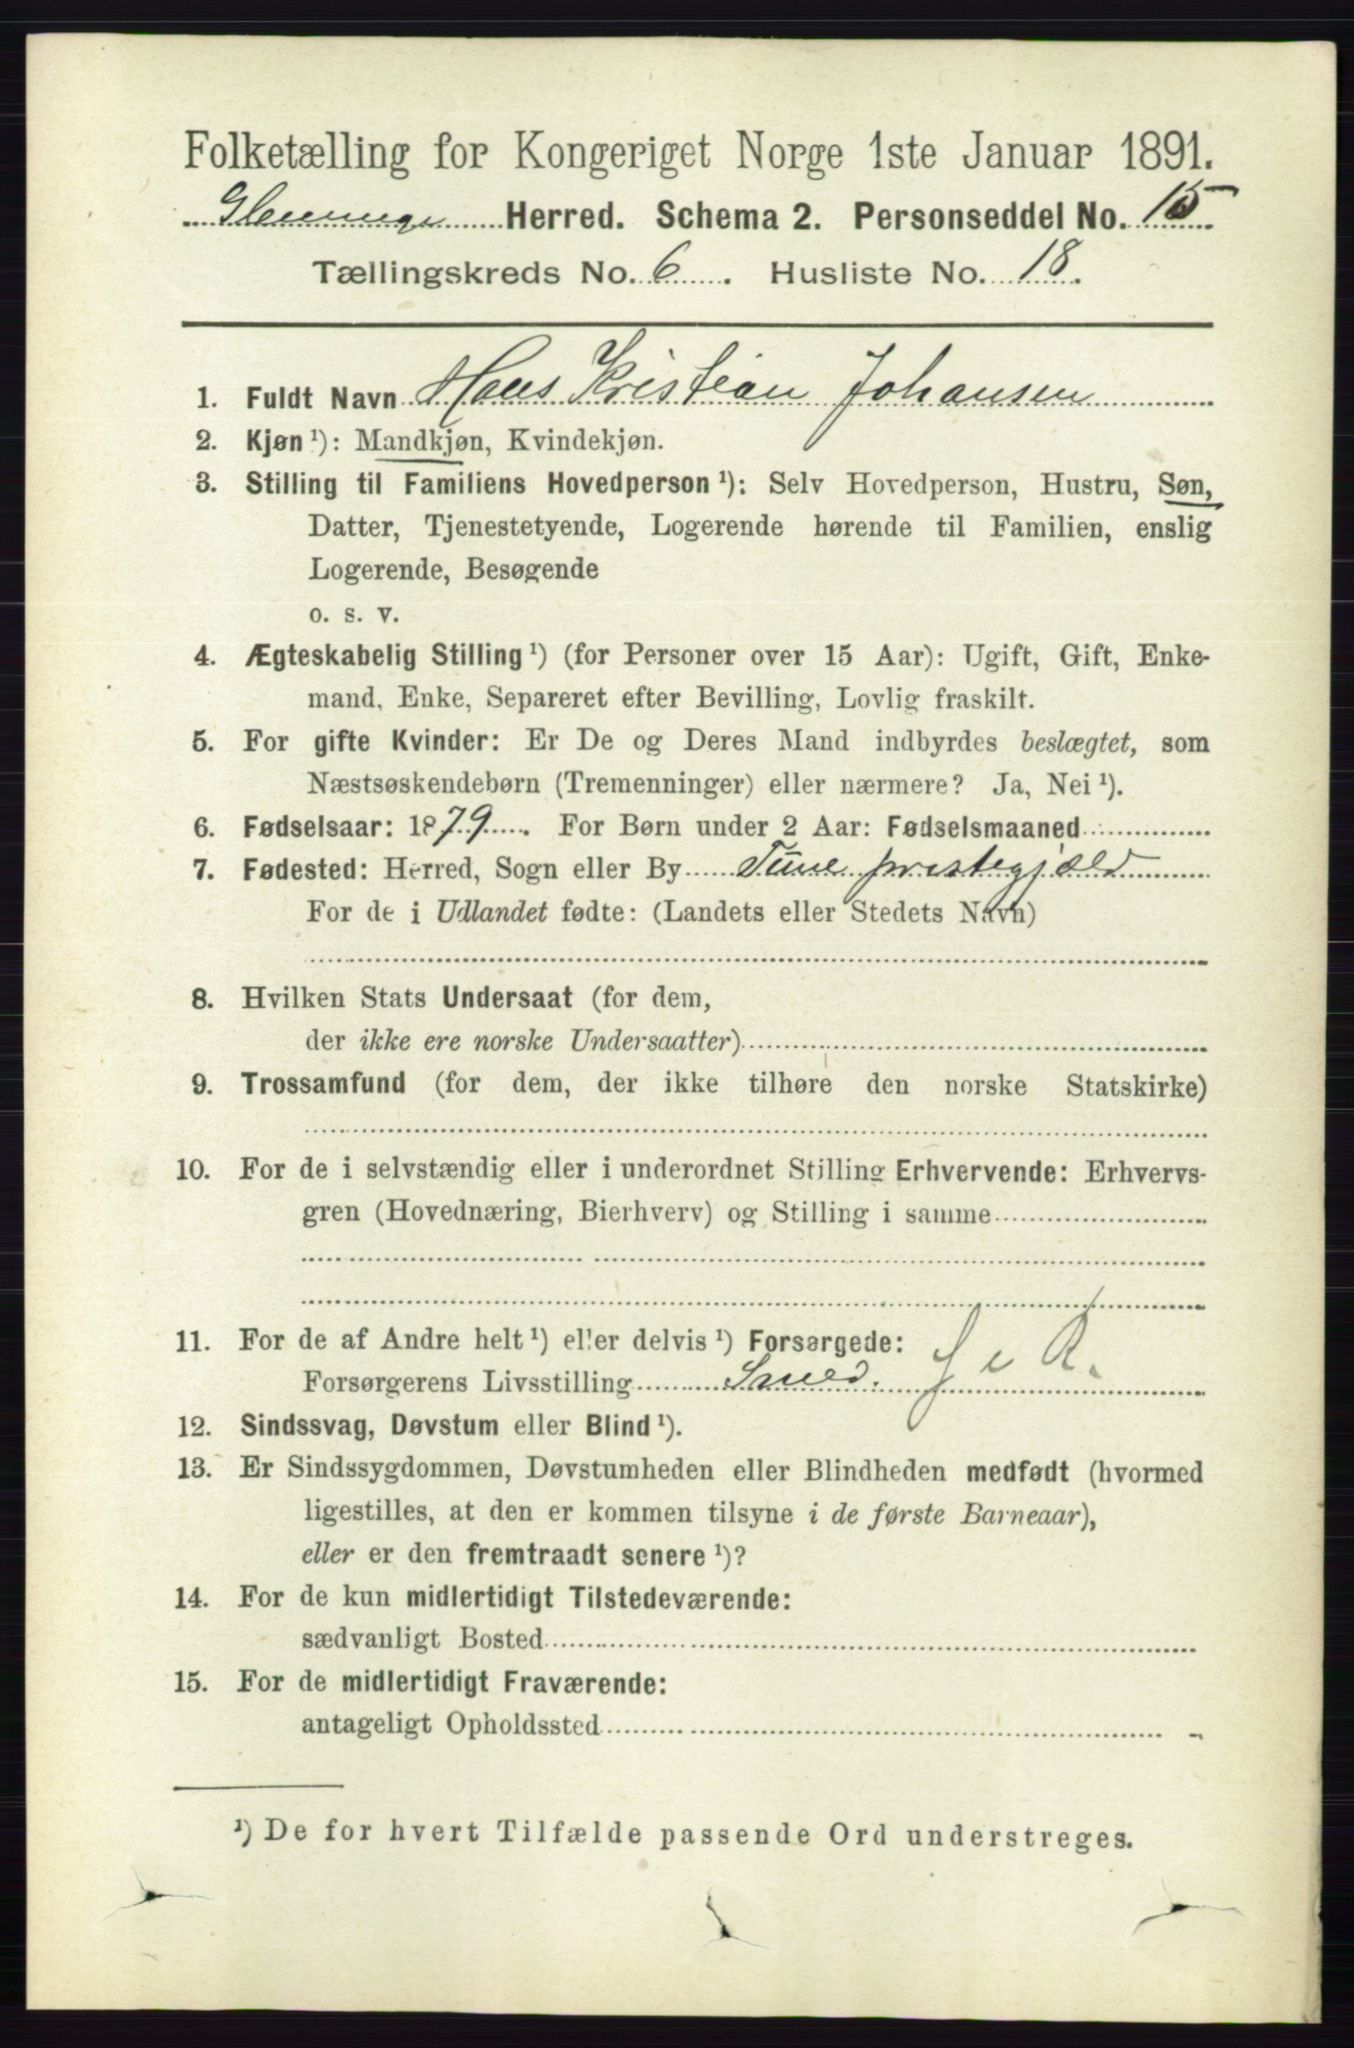 Folketælling for Kongeriget Norge 1ste Januar 1891.
Glemminge Herred. Schema 2. Personseddel No. 15
Tællingskreds No. 6 . Husliste No. 18.
1. Fuldt Navn Hans Kristian Johansen
2. Kjøn ¹): Mandkjøn, Kvindekjøn.
3. Stilling til Familiens Hovedperson ¹): Selv Hovedperson, Hustru, Søn,
Datter, Tjenestetyende, Logerende hørende til Familien, enslig
Logerende, Besøgende
o. s. v.
4. Ægteskabelig Stilling ¹) (for Personer over 15 Aar): Ugift, Gift, Enke-
mand, Enke, Separeret efter Bevilling, Lovlig fraskilt.
5. For gifte Kvinder: Er De og Deres Mand indbyrdes beslægtet, som
Næstsøskendebørn (Tremenninger) eller nærmere? Ja, Nei ¹).
6. Fødselsaar: 1879 . For Børn under 2 Aar: Fødselsmaaned
7. Fødested: Herred, Sogn eller By Tune prestegjæld
For de i Udlandet fødte: (Landets eller Stedets Navn)
8. Hvilken Stats Undersaat (for dem,
der ikke ere norske Undersaatter)
9. Trossamfund (for dem, der ikke tilhøre den norske Statskirke)
10. For de i selvstændig eller i underordnet Stilling Erhvervende: Erhvervs-
gren (Hovednæring, Bierhverv) og Stilling i samme
11. For de af Andre helt ¹) eller delvis ¹) Forsørgede:
Forsørgerens Livsstilling Smed.
12. Sindssvag, Døvstum eller Blind ¹).
13. Er Sindssygdommen, Døvstumheden eller Blindheden medfødt (hvormed
ligestilles, at den er kommen tilsyne i de første Barneaar),
eller er den fremtraadt senere ¹)?
14. For de kun midlertidigt Tilstedeværende:
sædvanligt Bosted
15. For de midlertidigt Fraværende:
antageligt Opholdssted
¹) De for hvert Tilfælde passende Ord understreges.